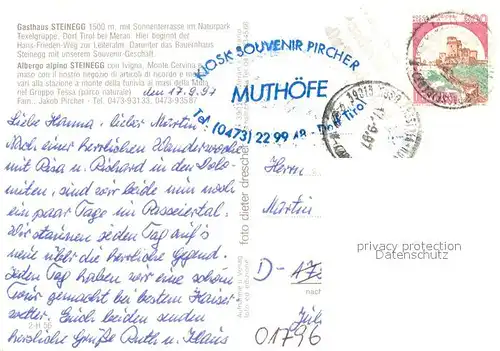 Gasthaus STEINEGG 1500 m, mit Sonnenterrasse im Naturpark
Texelgruppe. Dorf Tirol bei Meran. Hier beginnt der
Hans-Frieden-Weg zur Leiteralm. Darunter das Bauernhaus
Steinegg mit unserem Souvenir-Geschäft.
Albergo alpino STEINEGG con Ivigna, Monte Cervina
maso con il nostro negozio di articoli di ricordo e
vari alla stazione a monte della funivia ai masi della Muta
nel Gruppo Tessa (parco naturale)
Fam. Jakob Pircher - Tel. 0473-93133, 0473-93587
den 17.9.97
Liebe Hanna, lieber Martin,
Nach einer herrlichen Wanderwoche
mit Rosa u. Richard in den Dolo-
miten, sind wir beide nun noch
ein paar Tage im Passeiertal,
wir staunen jeden Tag auf's
neue über die herrliche Gegend.
Jeden Tag haben wir eine schöne
Tour gemacht bei bestem Kaiser
wetter. Euch beiden senden
herzliche Grüße Ruth u. Klaus
2-H 56
foto dieter drescher
KIOSK SOUVENIR PIRCHER
MUTHÖFE
Tel. (0473) 22 99 48 - Dorf Tirol
Herrn
Martin
D-
nach
01796
privacy protection
Datenschutz